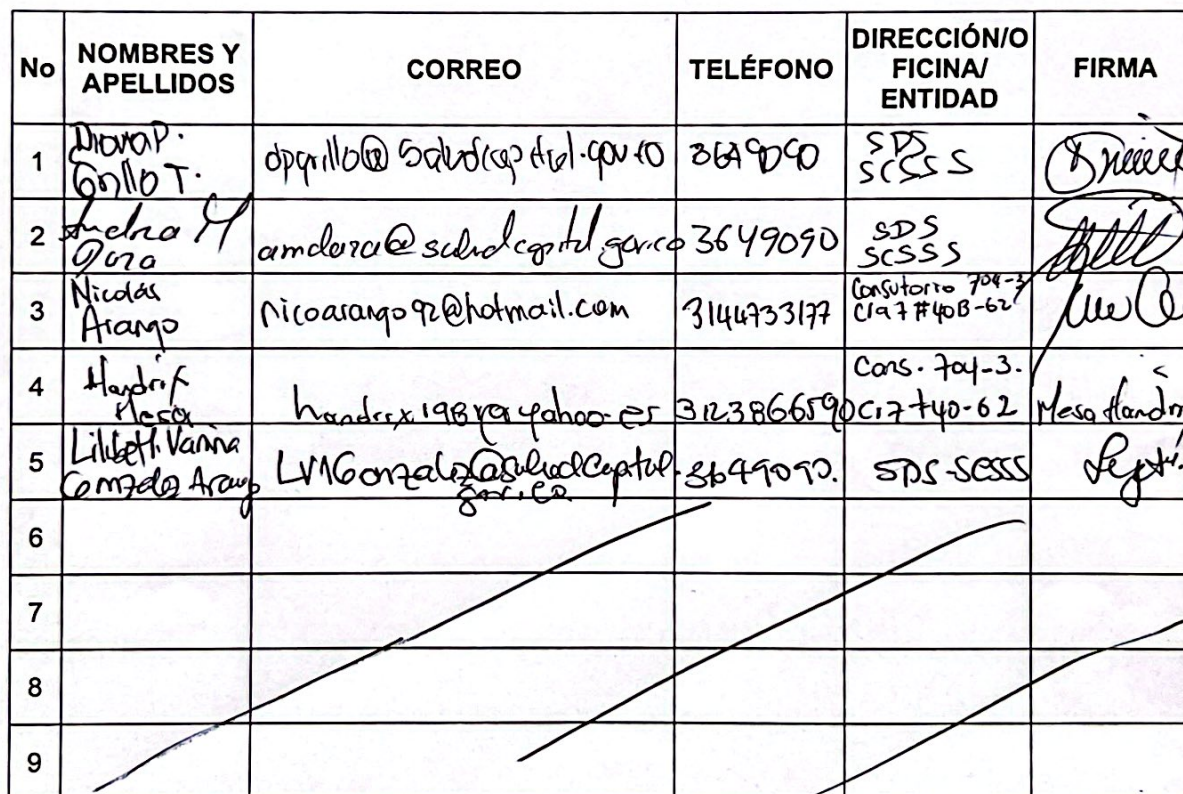 No NOMBRES Y APELLIDOS CORREO TELÉFONO DIRECCIÓN/O FICINA/ ENTIDAD FIRMA
1 Diana P. Grillo T. dpgrillo@saludcapital.gov.co 3649090 SDS SCSSS
2 Andrea M Daza amdaza@saludcapital.gov.co 3649090 SDS SCSSS
3 Nicolás Arango nicoarango92@hotmail.com 3144733177 Consutorio 704-3 Cra 7 #40B-62
4 Handrix Mesa 3123866590 Cons. 704-3. Cr 7 #40-62 Mesa Handrix
5 Lilibeth Vanina Gonzalez Araujo LV1Gonzalez@saludcapital.gov.co 3649090. SDS-SCSSS
6
7
8
9